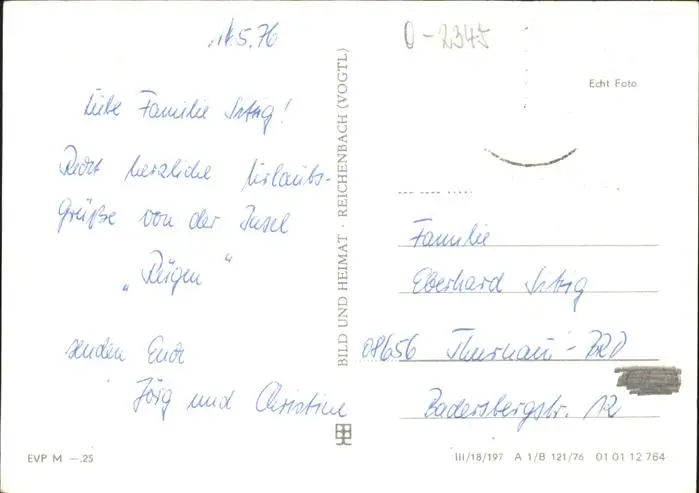 5.76
Liebe Familie Sitzg!
Recht herzliche Urlaubs-
grüße von der Insel
„Rügen“
senden Euch
Jörg und Christine
EVP M —.25
BILD UND HEIMAT · REICHENBACH (VOGTL)
0-2345
Echt Foto
Familie
Eberhard Sitzg
08656 Thurnau - BRD
Badersbergstr. 12
III/18/197 A 1/B 121/76 01 01 12 764